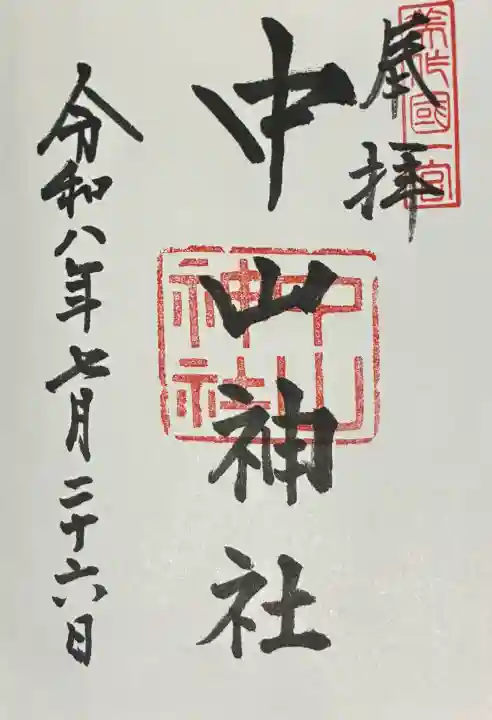 奉拝
美作國一宮
中山神社
中山神社
令和八年七月二十六日